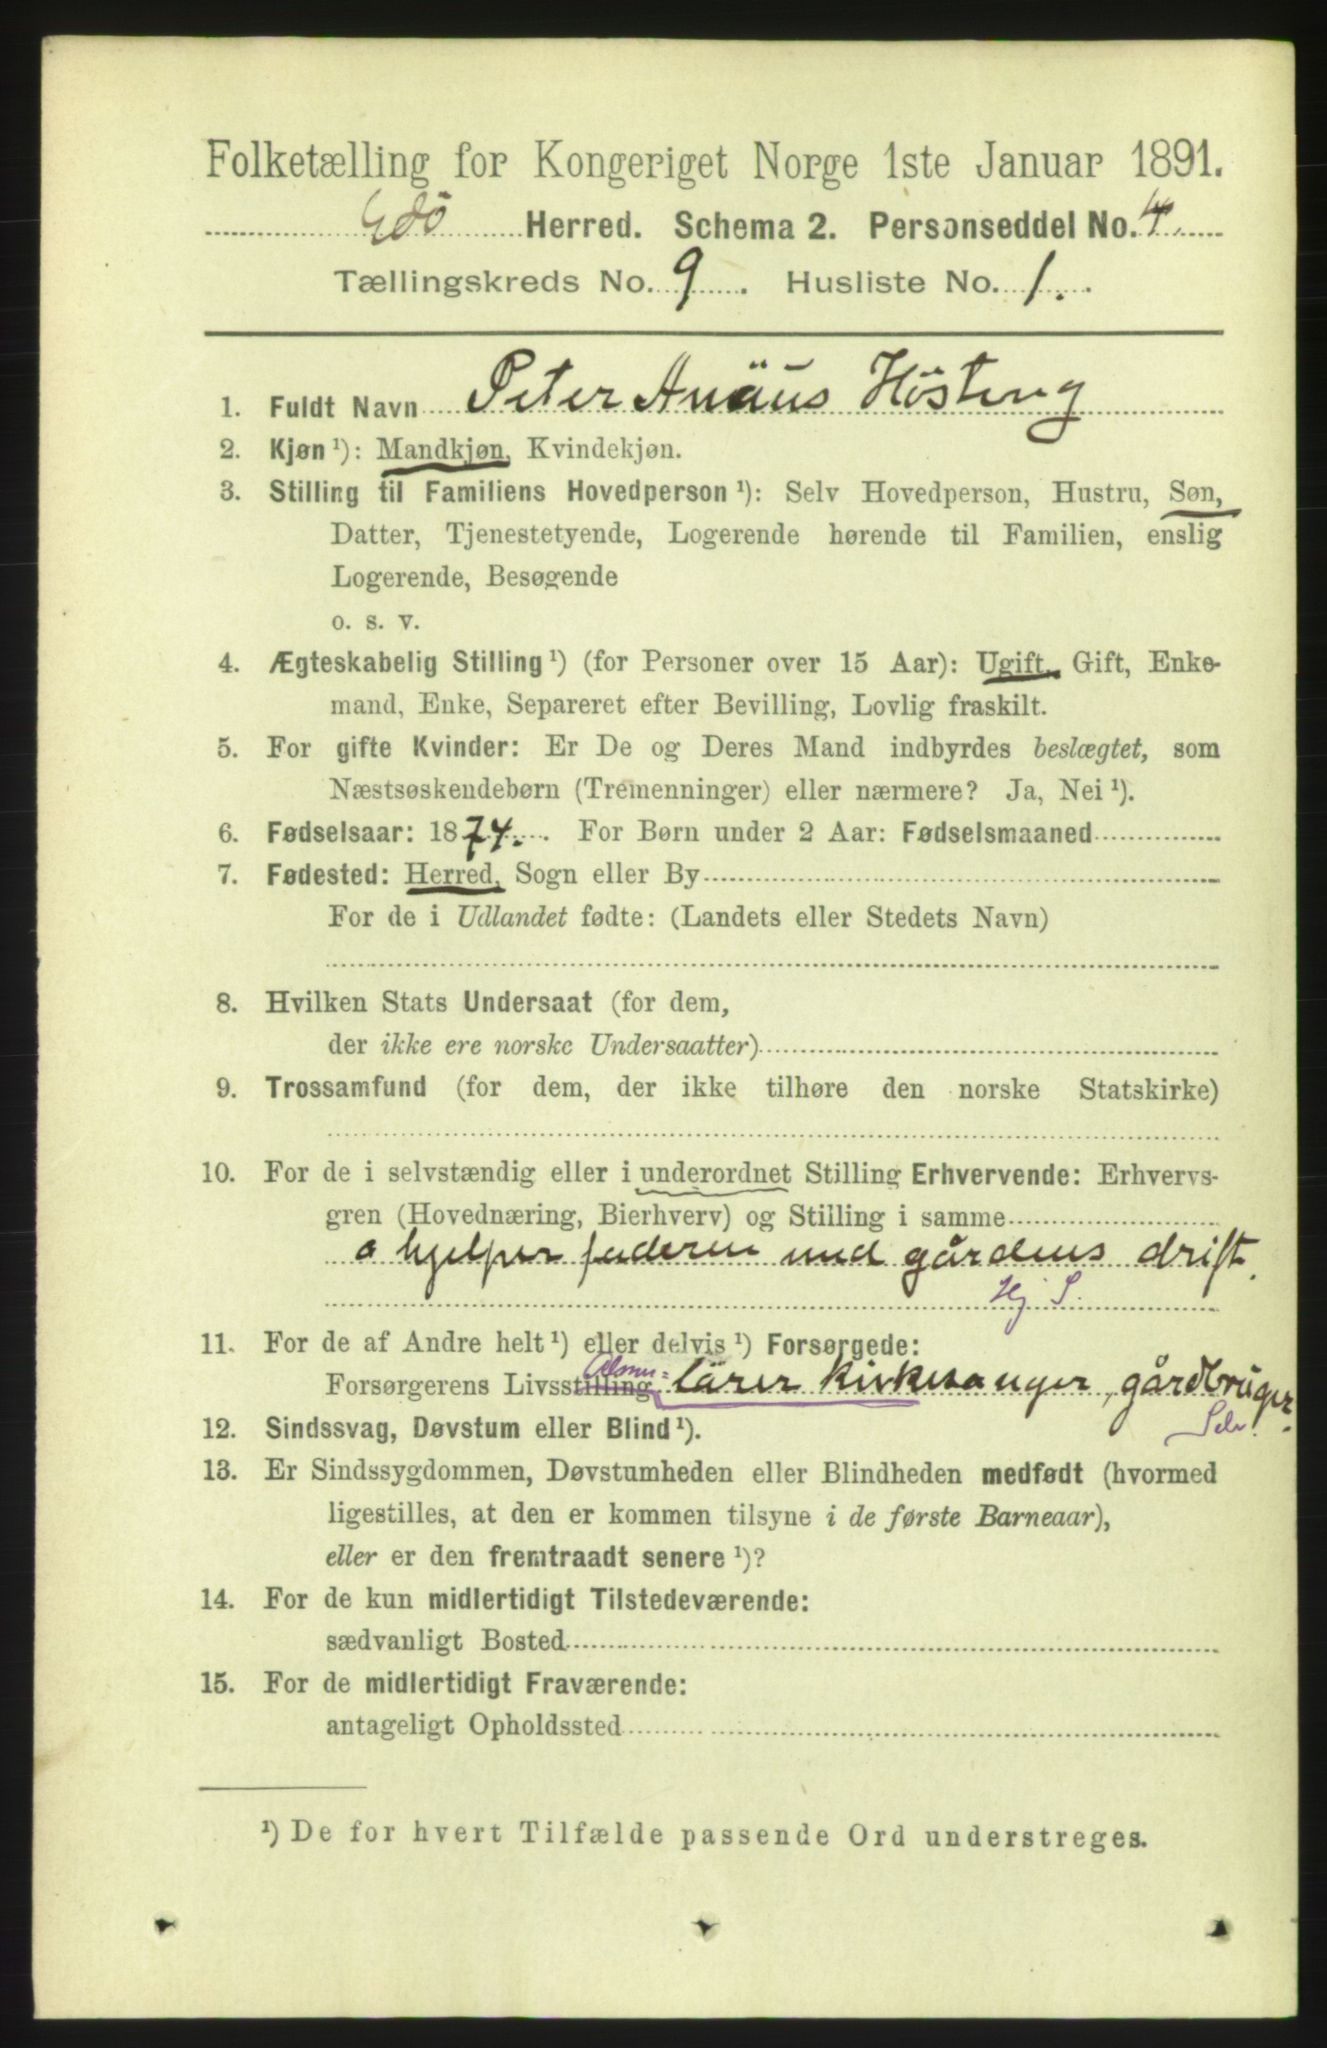 Folketælling for Kongeriget Norge 1ste Januar 1891.
Edö Herred. Schema 2. Personseddel No. 4.
Tællingskreds No. 9. Husliste No. 1.
1. Fuldt Navn Peter Anäus Hösteng
2. Kjøn ¹): Mandkjøn, Kvindekjøn.
3. Stilling til Familiens Hovedperson ¹): Selv Hovedperson, Hustru, Søn,
Datter, Tjenestetyende, Logerende hørende til Familien, enslig
Logerende, Besøgende
o. s. v.
4. Ægteskabelig Stilling ¹) (for Personer over 15 Aar): Ugift, Gift, Enke-
mand, Enke, Separeret efter Bevilling, Lovlig fraskilt.
5. For gifte Kvinder: Er De og Deres Mand indbyrdes beslægtet, som
Næstsøskendebørn (Tremenninger) eller nærmere? Ja, Nei ¹).
6. Fødselsaar: 1874. For Børn under 2 Aar: Fødselsmaaned
7. Fødested: Herred, Sogn eller By
For de i Udlandet fødte: (Landets eller Stedets Navn)
8. Hvilken Stats Undersaat (for dem,
der ikke ere norske Undersaatter)
9. Trossamfund (for dem, der ikke tilhøre den norske Statskirke)
10. For de i selvstændig eller i underordnet Stilling Erhvervende: Erhvervs-
gren (Hovednæring, Bierhverv) og Stilling i samme
o hjelper faderen med gårdens drift.
Hj S.
11. For de af Andre helt ¹) eller delvis ¹) Forsørgede:
Forsørgerens Livsstilling Almu= lärer kirkesanger, gårdbruger.
Selv.
12. Sindssvag, Døvstum eller Blind ¹).
13. Er Sindssygdommen, Døvstumheden eller Blindheden medfødt (hvormed
ligestilles, at den er kommen tilsyne i de første Barneaar),
eller er den fremtraadt senere ¹)?
14. For de kun midlertidigt Tilstedeværende:
sædvanligt Bosted
15. For de midlertidigt Fraværende:
antageligt Opholdssted
¹) De for hvert Tilfælde passende Ord understreges.